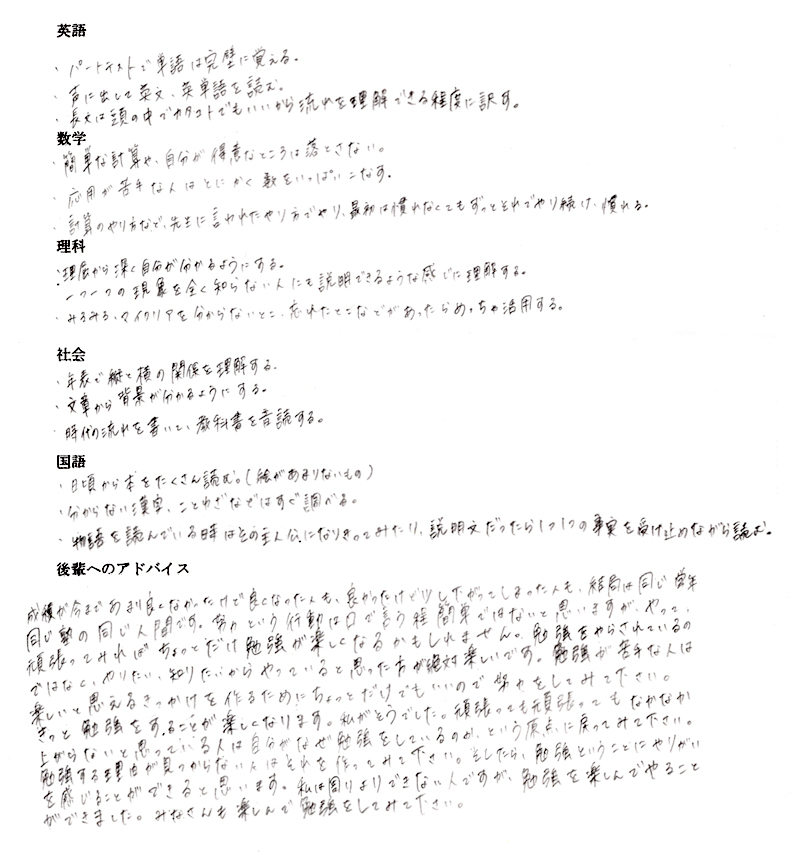 英語
・パートテストで単語は完璧に覚える。
・声に出して英文、英単語を読む。
・長文は頭の中でカタコトでもいいから流れを理解できる程度に訳す。
数学
・簡単な計算や、自分が得意なところは落とさない。
・応用が苦手な人はとにかく数をいっぱいこなす。
・計算のやり方など、先生に言われたやり方でやり、最初は慣れなくてもずっとそれでやり続け、慣れる。
理科
・理屈から深く自分が分かるようにする。
・一つ一つの現象を全く知らない人にも説明できるような感じに理解する。
・みるみる、マイクリアを分からないとこ、忘れたとこなどがあったらめっちゃ活用する。
社会
・年表で縦と横の関係を理解する。
・文章から背景が分かるようにする。
・時代の流れを書いて、教科書を音読する。
国語
・日頃から本をたくさん読む。(絵があまりないもの)
・分からない漢字、ことわざなどはすぐ調べる。
・物語を読んでいる時はその主人公になりきってみたり、説明文だったら1つ1つの事実を受け止めながら読む。
後輩へのアドバイス
成績が今まであまり良くなかったけど良くなった人も、良かったけど少し下がってしまった人も、結局は同じ学年
同じ塾の同じ人間です。努力という行動は口で言う程簡単ではないと思いますが、やって、
頑張ってみればちょっとだけ勉強が楽しくなるかもしれません。勉強をやらされているの
ではなく、やりたい、知りたいからやっていると思った方が絶対楽しいです。勉強が苦手な人は
楽しいと思えるきっかけを作るためにちょっとだけでもいいので努力をしてみて下さい。
きっと勉強をすることが楽しくなります。私がそうでした。頑張っても頑張ってもなかなか
上がらないと思っている人は自分がなぜ勉強をしているのか、という原点に戻ってみて下さい。
勉強する理由が見つからない人はそれを作ってみて下さい。そしたら、勉強ということにやりがい
を感じることができると思います。私は周りよりできない人ですが、勉強を楽しんでやること
ができました。みなさんも楽しんで勉強をしてみて下さい。